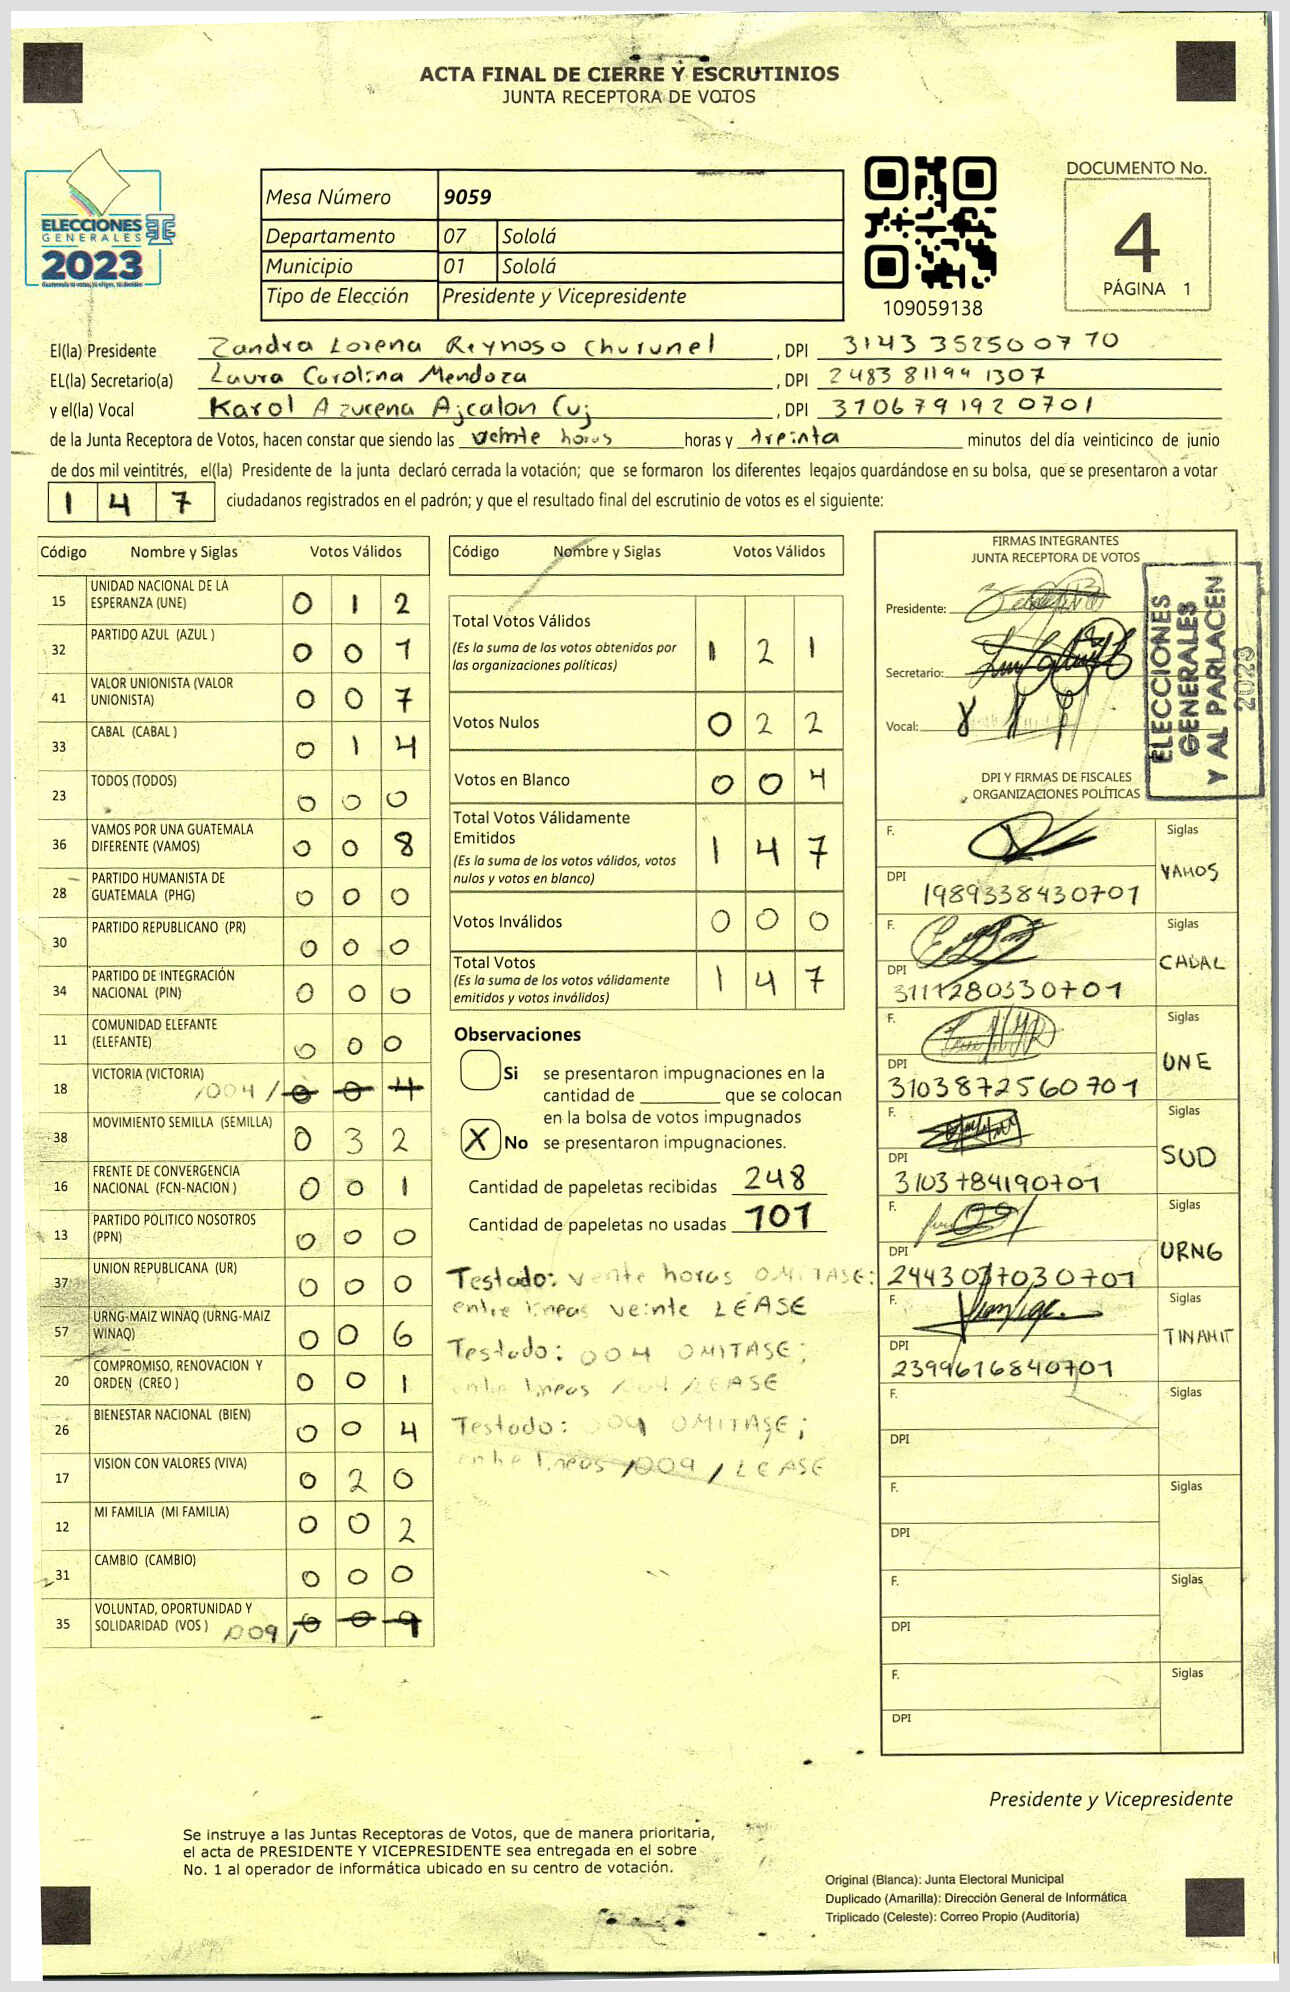 ACTA FINAL DE CIERRE Y ESCRUTINIOS
JUNTA RECEPTORA DE VOTOS
ELECCIONES
GENERALES
2023
Mesa Número 9059
Departamento 07 Sololá
Municipio 01 Sololá
Tipo de Elección Presidente y Vicepresidente
109059138
DOCUMENTO No.
4
PÁGINA 1
El(la) Presidente Zandra Lorena Reynoso Churunel , DPI 3143 35250 0770
EL(la) Secretario(a) Laura Carolina Mendoza , DPI 2483 81194 1307
y el(la) Vocal Karol Azucena Ajcalon Cuj , DPI 3706791920701
de la Junta Receptora de Votos, hacen constar que siendo las veinte horas horas y treinta minutos del día veinticinco de junio
de dos mil veintitrés, el(la) Presidente de la junta declaró cerrada la votación; que se formaron los diferentes legajos quardándose en su bolsa, que se presentaron a votar
147 ciudadanos registrados en el padrón; y que el resultado final del escrutinio de votos es el siguiente:
Código Nombre y Siglas Votos Válidos
15 UNIDAD NACIONAL DE LA ESPERANZA (UNE) 0 1 2
32 PARTIDO AZUL (AZUL ) 0 0 1
41 VALOR UNIONISTA (VALOR UNIONISTA) 0 0 7
33 CABAL (CABAL ) 0 1 4
23 TODOS (TODOS) 0 0 0
36 VAMOS POR UNA GUATEMALA DIFERENTE (VAMOS) 0 0 8
28 PARTIDO HUMANISTA DE GUATEMALA (PHG) 0 0 0
30 PARTIDO REPUBLICANO (PR) 0 0 0
34 PARTIDO DE INTEGRACIÓN NACIONAL (PIN) 0 0 0
11 COMUNIDAD ELEFANTE (ELEFANTE) 0 0 0
18 VICTORIA (VICTORIA) /004/ 0 0 4
38 MOVIMIENTO SEMILLA (SEMILLA) 0 3 2
16 FRENTE DE CONVERGENCIA NACIONAL (FCN-NACION ) 0 0 1
13 PARTIDO POLITICO NOSOTROS (PPN) 0 0 0
37 UNION REPUBLICANA (UR) 0 0 0
57 URNG-MAIZ WINAQ (URNG-MAIZ WINAQ) 0 0 6
20 COMPROMISO, RENOVACION Y ORDEN (CREO ) 0 0 1
26 BIENESTAR NACIONAL (BIEN) 0 0 4
17 VISION CON VALORES (VIVA) 0 2 0
12 MI FAMILIA (MI FAMILIA) 0 0 2
31 CAMBIO (CAMBIO) 0 0 0
35 VOLUNTAD, OPORTUNIDAD Y SOLIDARIDAD (VOS ) /009/ 0 0 9
Código Nombre y Siglas Votos Válidos
Total Votos Válidos 1 2 1
(Es la suma de los votos obtenidos por
las organizaciones políticas)
Votos Nulos 0 2 2
Votos en Blanco 0 0 4
Total Votos Válidamente
Emitidos 1 4 7
(Es la suma de los votos válidos, votos
nulos y votos en blanco)
Votos Inválidos 0 0 0
Total Votos 1 4 7
(Es la suma de los votos válidamente
emitidos y votos inválidos)
Observaciones
Si se presentaron impugnaciones en la
cantidad de ________ que se colocan
en la bolsa de votos impugnados
X No se presentaron impugnaciones.
Cantidad de papeletas recibidas 248
Cantidad de papeletas no usadas 101
Testado: veinte horas OMITASE:
entre lineas veinte LEASE
Testado: 004 OMITASE;
entre lineas /004/LEASE
Testado: 009 OMITASE;
entre lineas /009/LEASE
FIRMAS INTEGRANTES
JUNTA RECEPTORA DE VOTOS
Presidente:
Secretario:
Vocal:
ELECCIONES
GENERALES
Y AL PARLACEN
2023
DPI Y FIRMAS DE FISCALES
ORGANIZACIONES POLÍTICAS
F. Siglas
DPI 1989338430701 VAMOS
F. Siglas
DPI 3111280330701 CABAL
F. Siglas
DPI 3103872560701 UNE
F. Siglas
DPI 3103784190701 SUD
F. Siglas
DPI 2443037030701 URNG
F. Siglas
DPI 2399616840701 TINAMIT
F. Siglas
DPI
F. Siglas
DPI
F. Siglas
DPI
F. Siglas
DPI
Presidente y Vicepresidente
Se instruye a las Juntas Receptoras de Votos, que de manera prioritaria,
el acta de PRESIDENTE Y VICEPRESIDENTE sea entregada en el sobre
No. 1 al operador de informática ubicado en su centro de votación.
Original (Blanca): Junta Electoral Municipal
Duplicado (Amarilla): Dirección General de Informática
Triplicado (Celeste): Correo Propio (Auditoría)